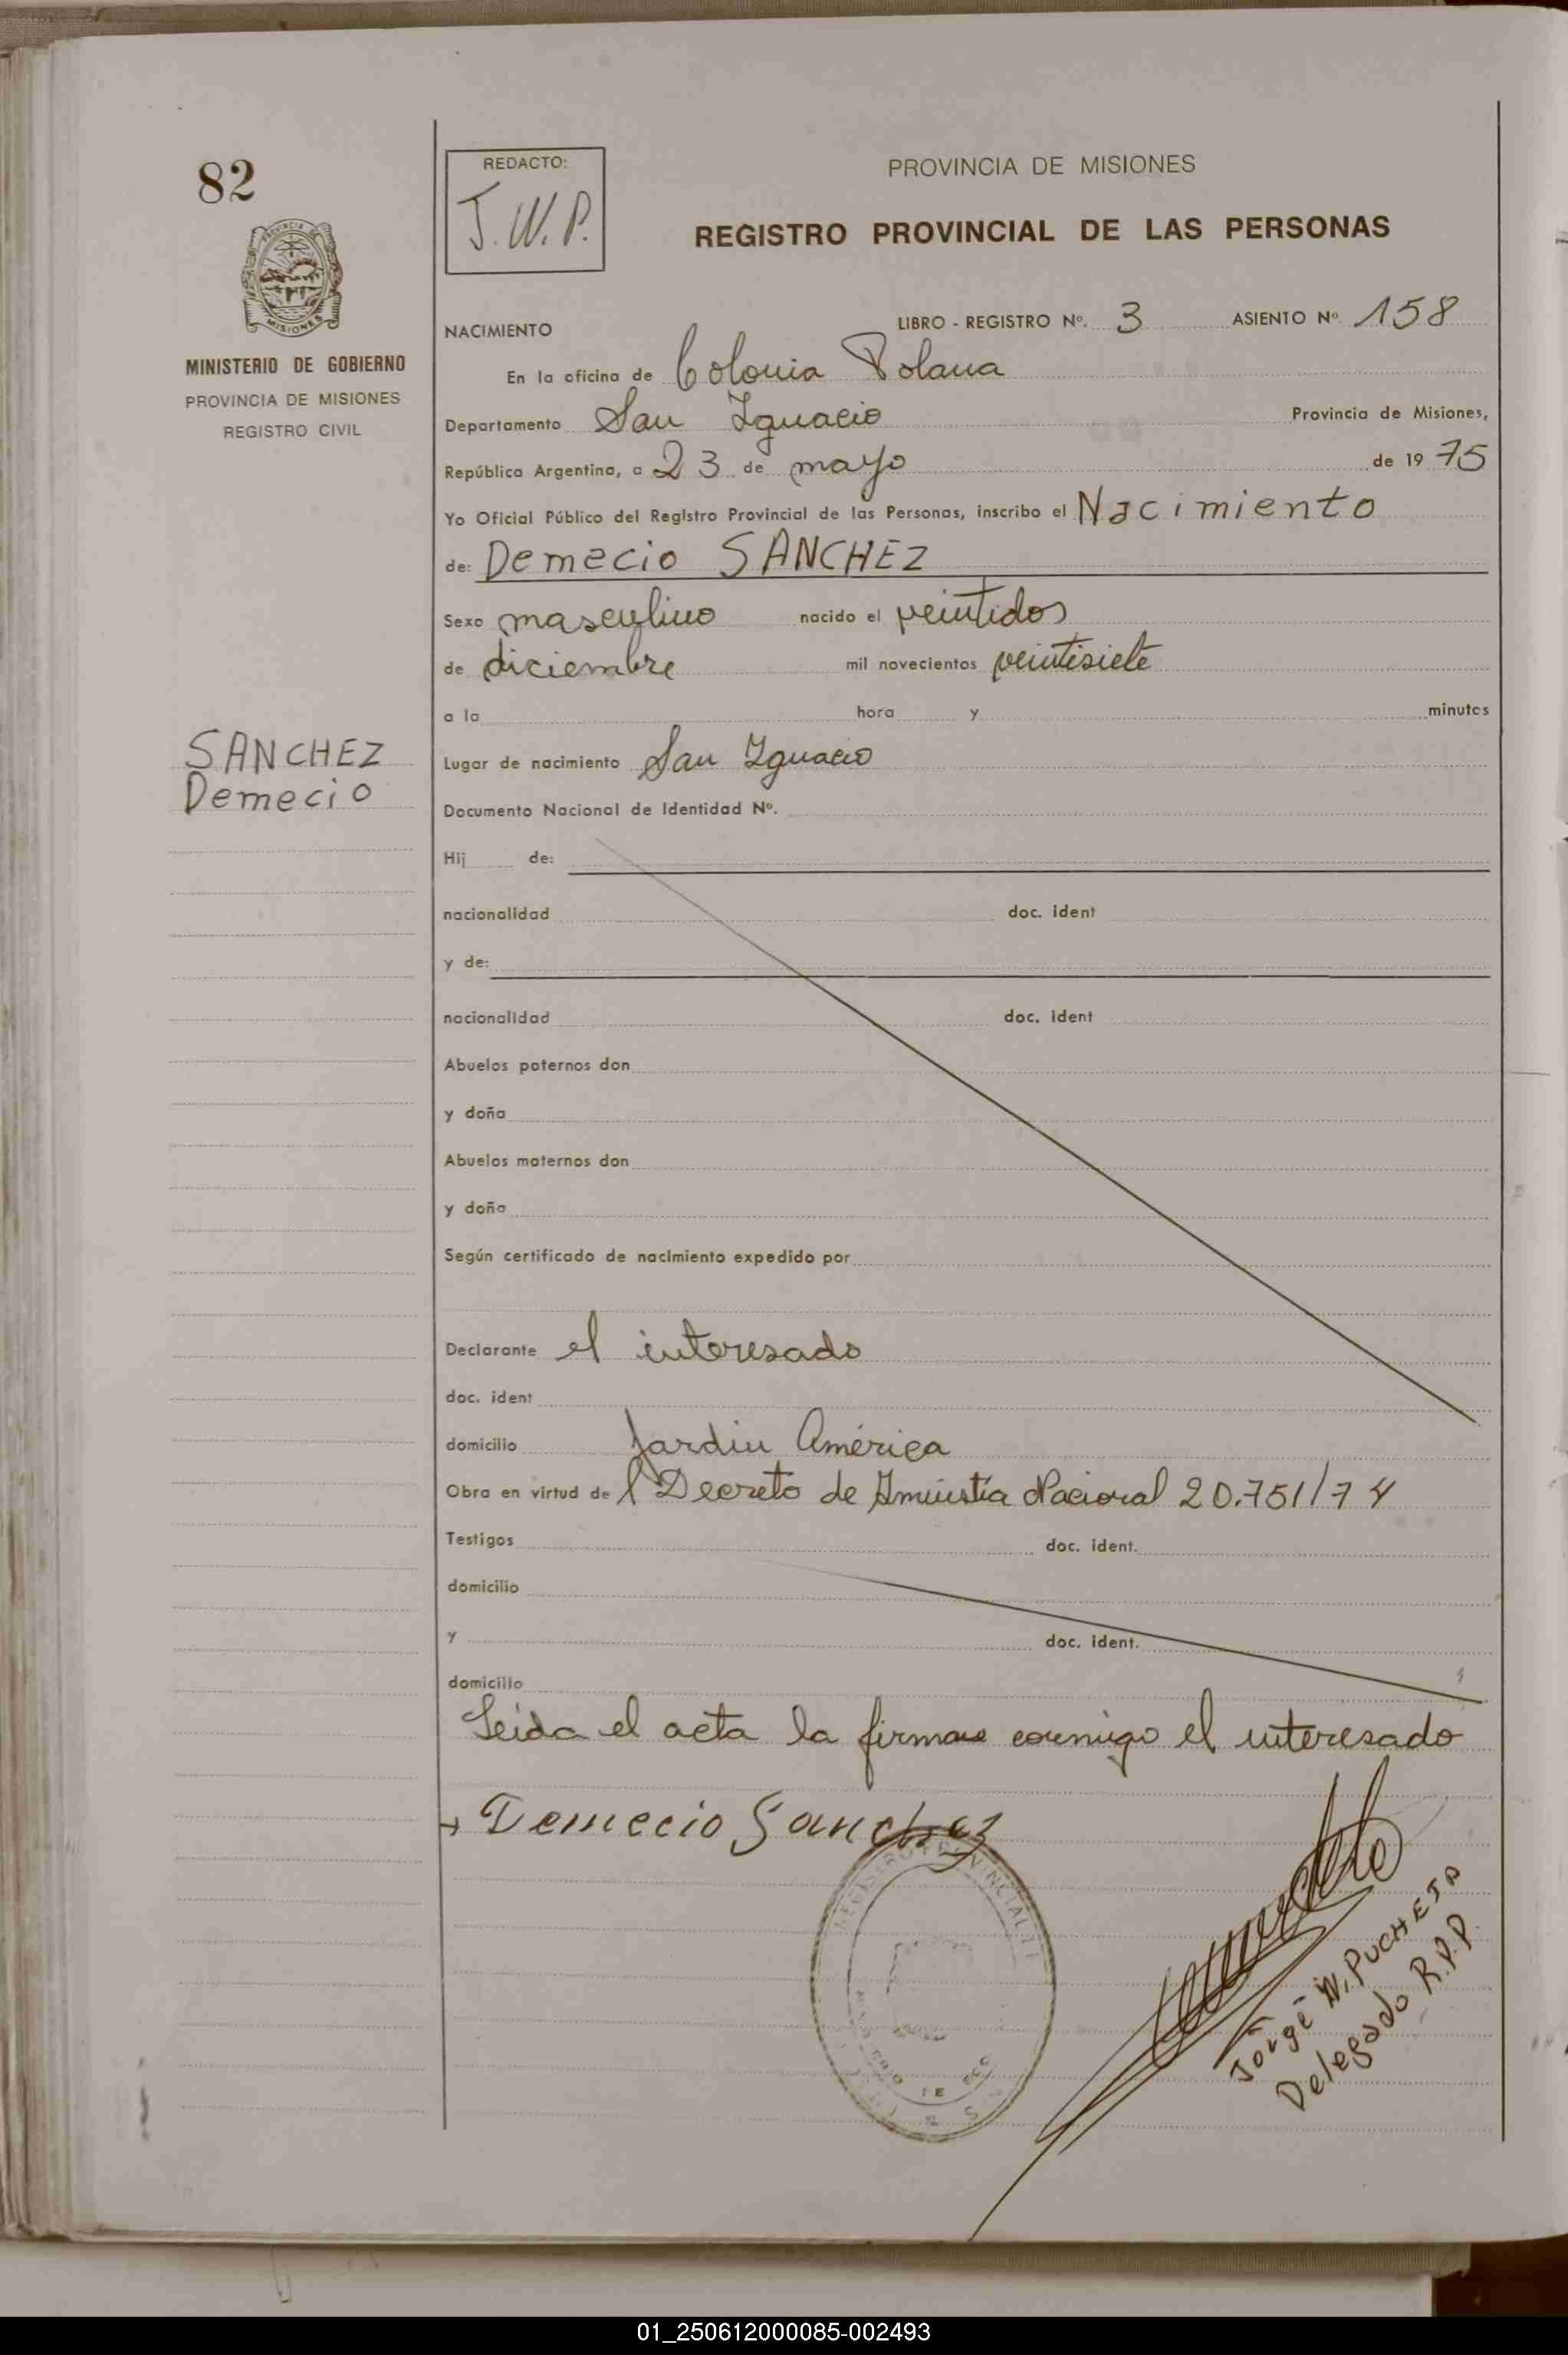 82
MISIONES
MINISTERIO DE GOBIERNO
PROVINCIA DE MISIONES
REGISTRO CIVIL
SANCHEZ
Demecio
REDACTO:
J.W.P.
PROVINCIA DE MISIONES
REGISTRO PROVINCIAL DE LAS PERSONAS
NACIMIENTO LIBRO - REGISTRO Nº. 3 ASIENTO Nº 158
En la oficina de Colonia Polana
Departamento San Ignacio Provincia de Misiones,
República Argentina, a 23 de mayo de 1975
Yo Oficial Público del Registro Provincial de las Personas, inscribo el Nacimiento
de: Demecio SANCHEZ
Sexo masculino nacido el veintidos
de diciembre mil novecientos veintisiete
a la hora y minutos
Lugar de nacimiento San Ignacio
Documento Nacional de Identidad Nº.
Hij de:
nacionalidad doc. ident
y de:
nacionalidad doc. ident
Abuelos paternos don
y doña
Abuelos maternos don
y doña
Según certificado de nacimiento expedido por
Declarante el interesado
doc. ident
domicilio Jardin América
Obra en virtud de l Decreto de Amnistía Nacional 20.751/74
Testigos doc. ident.
domicilio
y doc. ident.
domicilio
Leida el acta la firma conmigo el interesado
Demecio Sanchez
REGISTRO PROVINCIAL
Jorge W. PUCHETA
Delegado R.P.P.
01_250612000085-002493